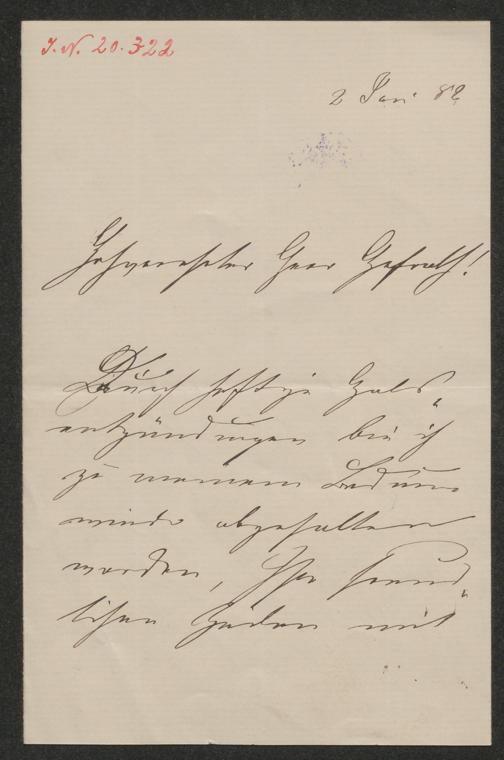 I.N. 20.322
2 Juni 82
Hochverehrter Herr Hofrath!
Durch heftige Hals„
entzündungen bin ich
zu meinem Bedauern
wieder abgehalten
worden, Ihre freund„
lichen Zeilen mit